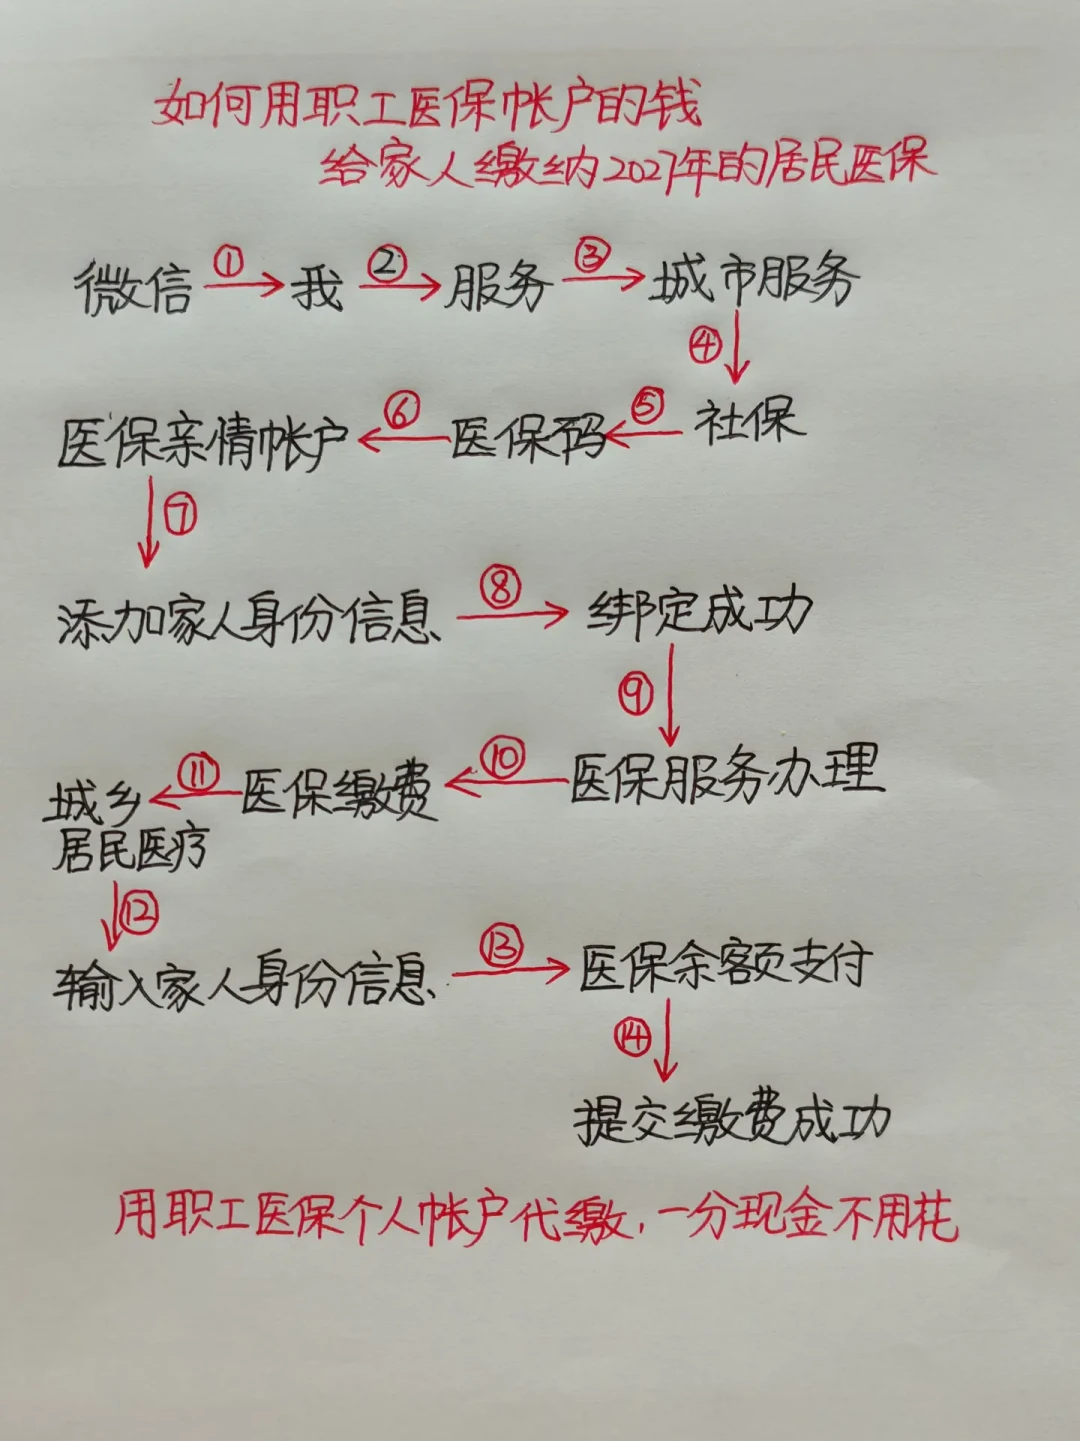 如何用职工医保帐户的钱
给家人缴纳2027年的居民医保
微信 ① 我 ② 服务 ③ 城市服务
④
医保亲情帐户 ⑥ 医保码 ⑤ 社保
⑦
添加家人身份信息 ⑧ 绑定成功
⑨
城乡 ⑪ 医保缴费 ⑩ 医保服务办理
居民医疗
⑫
输入家人身份信息 ⑬ 医保余额支付
⑭
提交缴费成功
用职工医保个人帐户代缴,一分现金不用花